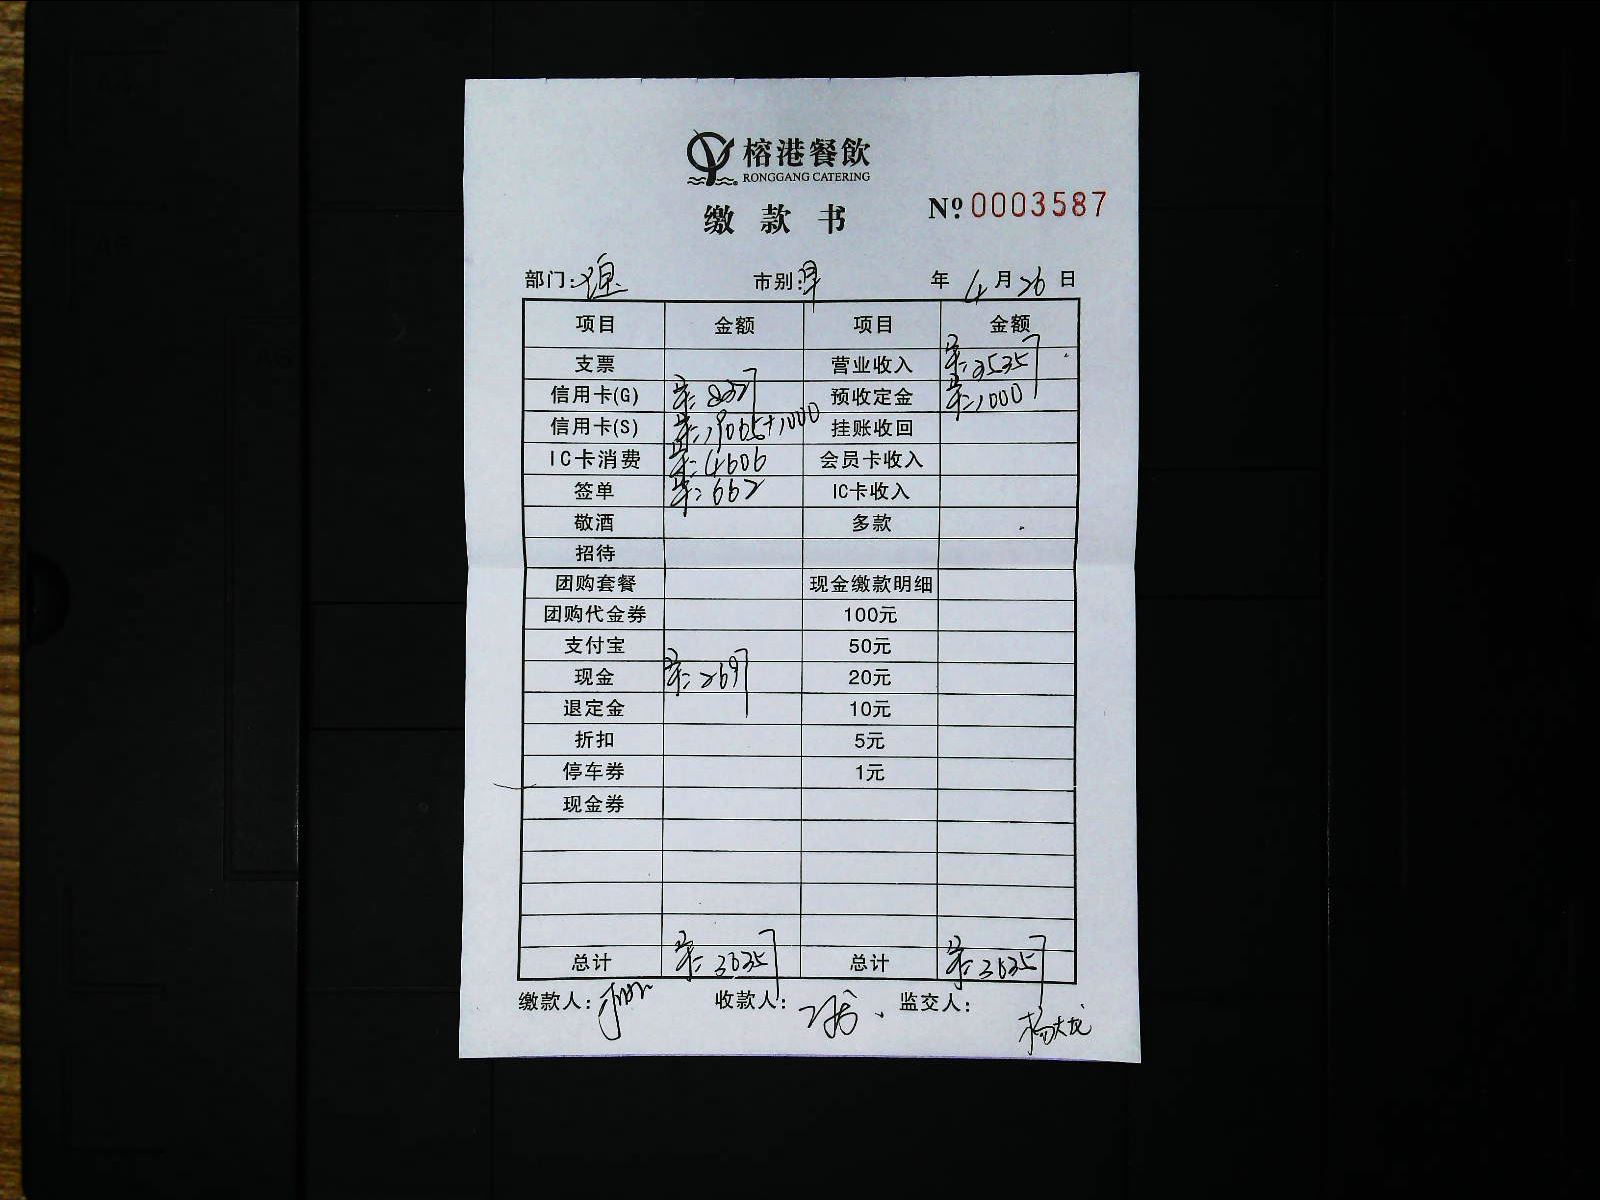 榕港餐飲
RONGGANG CATERING
缴款书 Nº 0003587
部门: 市别:早 年 4 月 26 日
项目 金额 项目 金额
支票 营业收入
信用卡(G) 预收定金 1000
信用卡(S) 挂账收回
IC卡消费 4606 会员卡收入
签单 662 IC卡收入
敬酒 多款
招待
团购套餐 现金缴款明细
团购代金券 100元
支付宝 50元
现金 2697 20元
退定金 10元
折扣 5元
停车券 1元
现金券
总计 总计
缴款人: 收款人: 监交人: 杨大龙